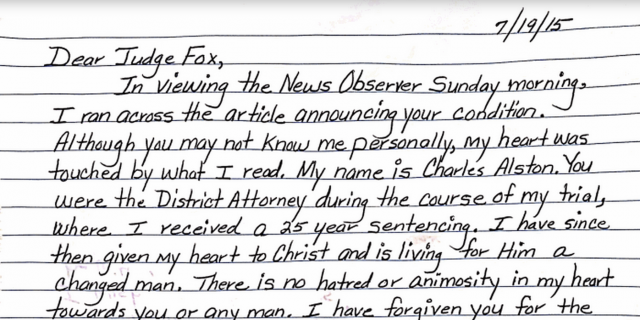 7/19/15
Dear Judge Fox,
In viewing the News Observer Sunday morning,
I ran across the article announcing your condition.
Although you may not know me personally, my heart was
touched by what I read. My name is Charles Alston. You
were the District Attorney during the course of my trial,
where I received a 25 year sentencing. I have since
then given my heart to Christ and is living for Him a
changed man. There is no hatred or animosity in my heart
towards you or any man. I have forgiven you for the